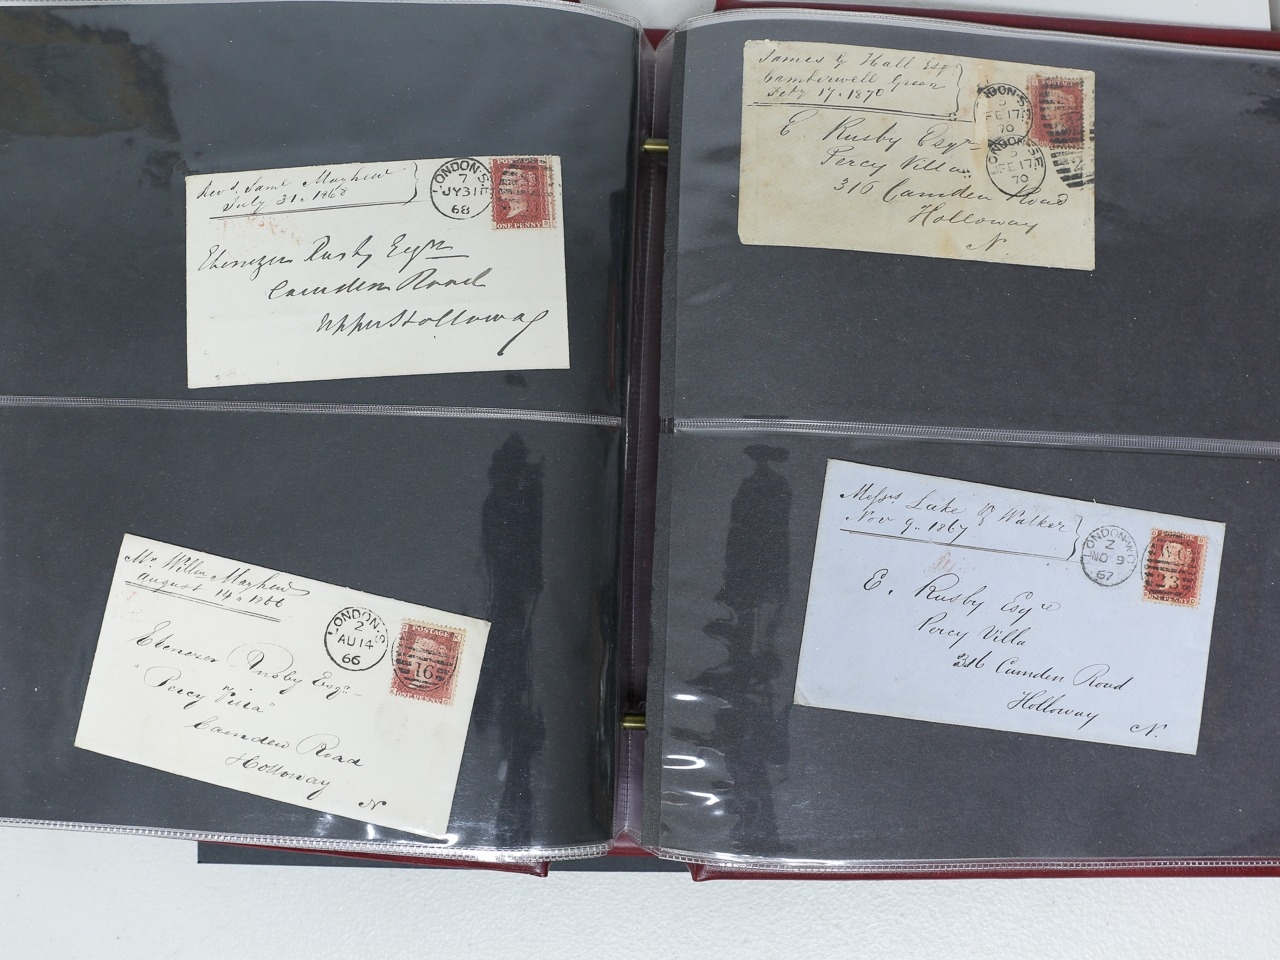 Revd. Saml Mayhew
July 31. 1868
LONDON·S.E
7
JY31
68
ONE PENNY
Ebenezer Rusby Esqre
Camden Road
Upper Holloway
Mr. Willm Mayhew
August 14. 1866
LONDON·S
2
AU14
66
POSTAGE
16
ONE PENNY
Ebenezer Rusby Esqre
"Percy Villa"
Camden Road
Holloway
N
James G Hall Esq
Camberwell Green
Feby 17. 1870
LONDON·S.E
5
FE17
70
LONDON·SE
5
FE17
70
E. Rusby Esqre
Percy Villa
316 Camden Road
Holloway
N.
Messrs. Lake & Walker
Nov 9. 1867
LONDON·W.C
Z
NO 9
67
W.C
23
ONE PENNY
E. Rusby Esqre
Percy Villa
316 Camden Road
Holloway
N.